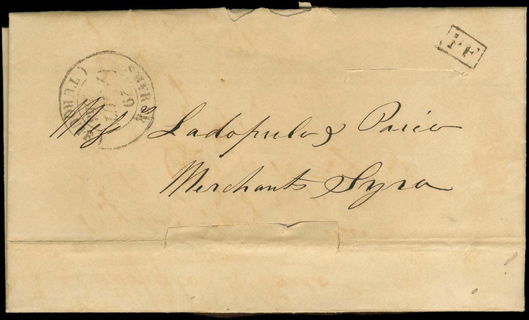 P.F.
SMYRNE
(TURQUIE)
Messrs Ladopulo & Paico
Merchants Syra